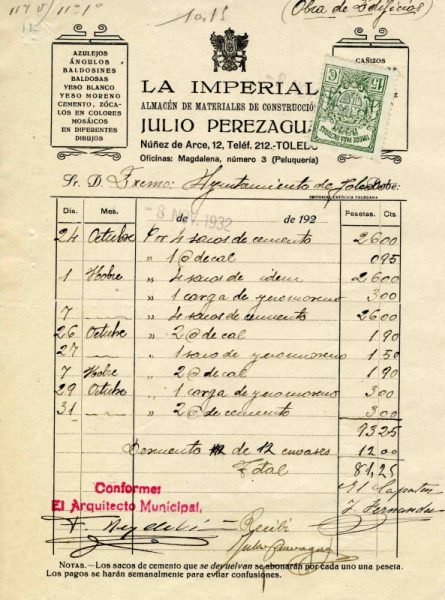 10,15
(Obra de Edificios)
AZULEJOS
ÁNGULOS
BALDOSINES
BALDOSAS
YESO BLANCO
YESO MORENO
CEMENTO, ZÓCA-
LOS EN COLORES
MOSÁICOS
EN DIFERENTES
DIBUJOS
CAÑIZOS
15
LA IMPERIAL
ALMACÉN DE MATERIALES DE CONSTRUCCIÓ
JULIO PEREZAGUA
Núñez de Arce, 12, Teléf. 212.-TOLEDO
Oficinas: Magdalena, número 3 (Peluquería)
Sr. D. Exemo: Ayuntamiento de Toledo Debe:
EDITORIAL CATÓLICA TOLEDANA
Día. Mes. - 8 NOV. 1932 de de 192 Pesetas. Cts.
24 Octubre Por 4 sacos de cemento 26 00
" 1 @ de cal 0 95
1 Nobre " 4 sacos de idem 26 00
" 1 carga de yeso moreno 3 00
7 " 4 sacos de cemento 26 00
26 Octubre " 2 @ de cal 1 90
27 " 1 saco de yeso moreno 1 50
7 Nobre " 2 @ de cal 1 90
29 Octubre " 1 carga de yeso moreno 3 00
31 " 2 @ de cemento 3 00
93 25
Descuento de 12 envases 12 00
Total 81,25
Conforme:
El Arquitecto Municipal,
El Capataz
J. Fernandez
Recibí
Julio Perezagua
NOTAS.—Los sacos de cemento que se devuelvan se abonarán por cada uno una peseta.
Los pagos se harán semanalmente para evitar confusiones.